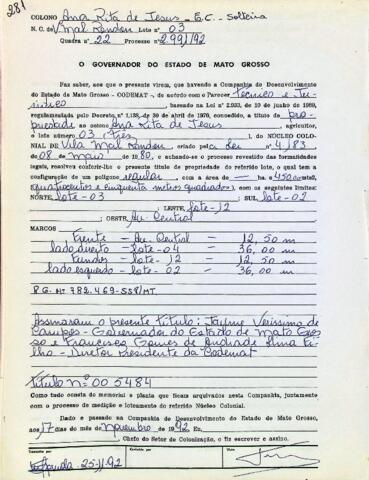 281
COLONO Ana Rita de Jesus - E.C. - Solteira
N. C. de V. Mal Rondon Lote nº 03
Quadra nº 22 Processo nº 2991/92
O GOVERNADOR DO ESTADO DE MATO GROSSO
Faz saber, aos que a presente Virem, que havendo a Companhia de Desenvolvimento
do Estado de Mato Grosso - CODEMAT -, de acôrdo com o Parecer Técnico e Ju-
rídico, baseado na Lei nº 2.933, de 10 de junho de 1969,
regulamentada pelo Decreto nº 1.138, de 30 de abril de 1970, concedido, a título de pro-
priedade ao senhor Ana Rita de Jesus, agricultor,
o lote número 03 (três), do NÚCLEO COLO-
NIAL DE Vila Mal Rondon, criado pela Lei nº 4183
de 08 de maio de 1980, e achando-se o processo revestido das formalidades
legais, resolveu conferir-lhe o presente título de propriedade do referido lote, o qual tem a
configuração de um polígono regular, com a área de — ha e 450 m2,
(quatrocentos e cinquenta metros quadrados), com os seguintes limites:
NORTE lote-03; SUL lote-02
; LESTE lote-12
; OESTE Av. Central
MARCOS
Frente - Av. Central - 12,50 m
lado direito - lote-04 - 36,00 m
Fundos - lote-12 - 12,50 m
lado esquerdo - lote-02 - 36,00 m
R.G. Nº 782.469-SSP/MT.
Assinaram o presente título: Jayme Verissimo de
Campos - Governador do Estado de Mato Gros-
so e Francisco Gomes de Andrade Lima Fi-
lho - Diretor Presidente da Codemat
Título nº 005484
Como tudo consta do memorial e planta que ficam arquivados nesta Companhia, juntamente
com o processo de medição e loteamento do referido Núcleo Colonial.
Dado e passado na Companhia de Desenvolvimento do Estado de Mato Grosso,
aos 17 dias do mês de novembro de 1992 Eu,
Chefe do Setor de Colonização, o fiz escrever e assino.
Transcrito por
Conferido por
Visto
25-11-92